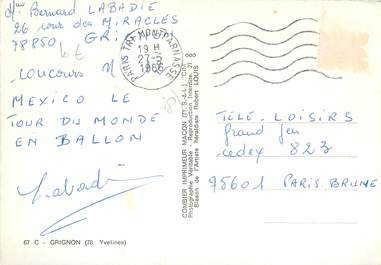 Mme Bernard LABADIE
26 cour des MIRACLES
78850 GRIGNON
Concours N
MEXICO LE
TOUR DU MONDE
EN BALLON
Labadie
67 C - GRIGNON (78. Yvelines)
PARIS TRI MONTPARNASSE
19 H
27-5
COMBIER IMPRIMEUR MACON (T.-S.-& L.) "CIM"
Photographie Véritable - Reproduction Interdite
Blason de l'Artiste Héraldiste Robert LOUIS
TÉLÉ. LOISIRS
grand jeu
cedex 823
95601 PARIS BRUNE